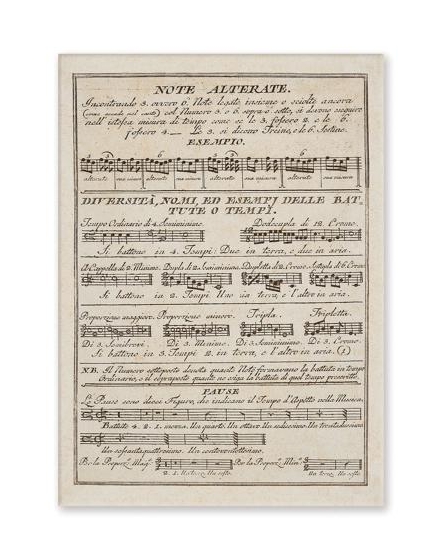 NOTE ALTERATE.
Incontrando 3. ovvero 6. Note legate insieme o sciolte ancora
col Numero 3. e 6. sopra o sotto, si devono eseguire
nell' istessa misura di tempo come se le 3. fossero 2. e le 6.
fossero 4. Le 3. si dicono Treine, e le 6. Sestine.
ESEMPIO.
3 3 6 6 3 6
alterate
DIVERSITÀ, NOMI, ED ESEMPJ DELLE BAT-
TUTE O TEMPI.
Tempo Ordinario di 4. Semiminime. Dodecupla di 12. Crome.
Si battono in 4. Tempi: Due in terra, e due in aria.
A Cappella di 2. Minime. Dupla di 2. Semiminime. di 6. Crome.
Si battono in 2. Tempi. Uno in terra, e l'altro in aria.
Proporzione maggiore. Proporzione minore. Tripla. Tripletta.
Di 3. Semibrevi. Di 3. Minime. Di 3. Semiminime. Di 3. Crome.
Si battono in 3. Tempi. 2. in terra, e l'altro in aria.
NB. Il Numero sottoposto denota quante Note formavano la battuta in tempo
Ordinario, e il sopraposto quante ne esige la battuta di quel tempo prescritto.
PAUSE
Le Pause sono dieci Figure, che indicano il Tempo d'Aspetto nella Musica.
Battute 4. 2. 1. mezza. Un quarto. Un ottavo. Un sedicesimo. Un trentaduesimo
Un sessantaquattresimo. Un centoventottesimo.
Per la Proporz. Magg. Per la Proporz. Min.
2. 1. Un terzo. Un sesto. Un terzo. Un sesto.